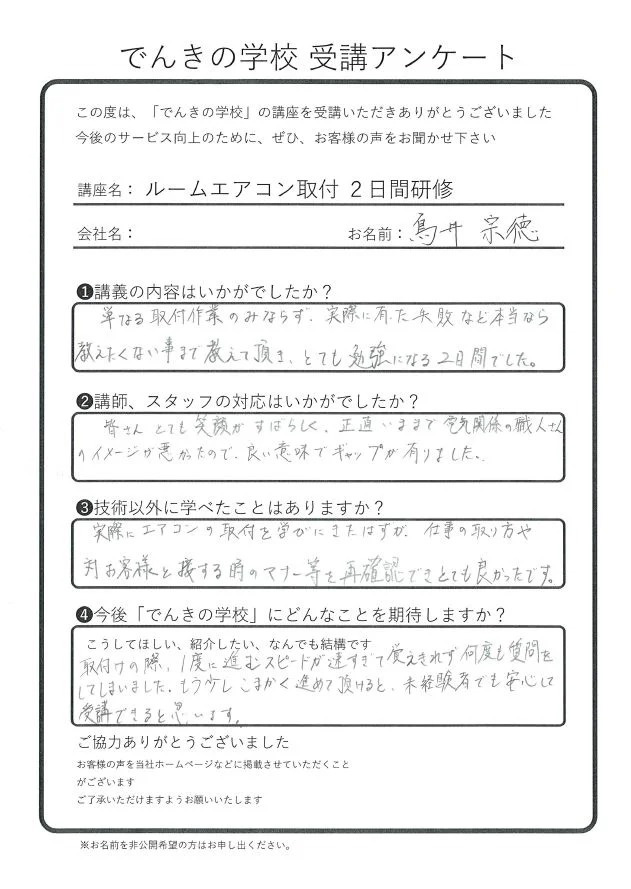 でんきの学校 受講アンケート
この度は、「でんきの学校」の講座を受講いただきありがとうございました
今後のサービス向上のために、ぜひ、お客様の声をお聞かせ下さい
講座名： ルームエアコン取付 ２日間研修
会社名： お名前： 鳥井 宗徳
❶講義の内容はいかがでしたか？
単なる取付作業のみならず、実際に有った失敗など本当なら
教えたくない事まで教えて頂き、とても勉強になる2日間でした。
❷講師、スタッフの対応はいかがでしたか？
皆さんとても笑顔がすばらしく、正直いままで電気関係の職人さん
のイメージが悪かったので、良い意味でギャップが有りました。
❸技術以外に学べたことはありますか？
実際にエアコンの取付を学びにきたはずが、仕事の取り方や
対お客様と接する時のマナー等を再確認できとても良かったです。
❹今後「でんきの学校」にどんなことを期待しますか？
こうしてほしい、紹介したい、なんでも結構です
取付けの際、1度に進むスピードが速すぎて覚えきれず何度も質問を
してしまいました。もう少しこまかく進めて頂けると、未経験者でも安心して
受講できると思います。
ご協力ありがとうございました
お客様の声を当社ホームページなどに掲載させていただくこと
がございます
ご了承いただけますようお願いいたします
※お名前を非公開希望の方はお申し出ください。